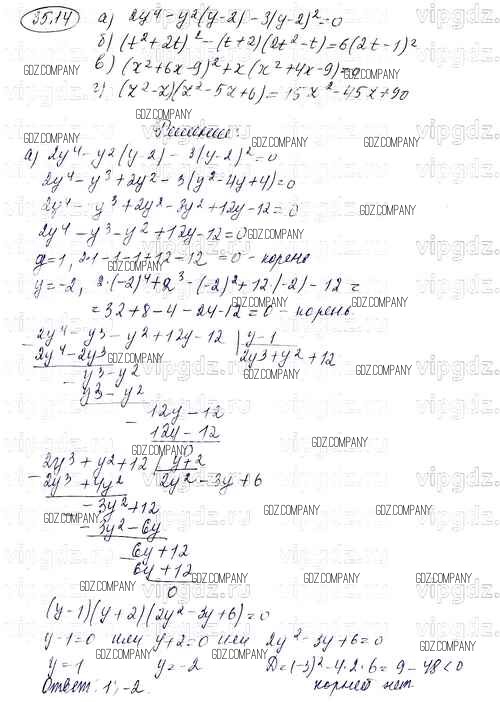 35.14
а) 2y⁴ - y²(y-2) - 3(y-2)² = 0
б) (t²+2t)² - (t+2)(2t²-t) = 6(2t-1)²
в) (x²+6x-9)² + x(x²+4x-9) = 0
г) (x²-x)(x²-5x+6) = 15x² - 45x + 90
Решение:
а) 2y⁴ - y²(y-2) - 3(y-2)² = 0
2y⁴ - y³ + 2y² - 3(y²-4y+4) = 0
2y⁴ - y³ + 2y² - 3y² + 12y - 12 = 0
2y⁴ - y³ - y² + 12y - 12 = 0
y=1, 2·1-1-1+12-12 = 0 - корень
y=-2, 2·(-2)⁴+2³-(-2)²+12(-2)-12 =
= 32+8-4-24-12 = 0 - корень
2y⁴ - y³ - y² + 12y - 12 | y-1
2y⁴ - 2y³ 2y³+y²+12
y³ - y²
y³ - y²
12y - 12
12y - 12
2y³ + y² + 12 | y+2
2y³ + 4y² 2y² - 3y + 6
-3y² + 12
-3y² - 6y
6y + 12
6y + 12
0
(y-1)(y+2)(2y²-3y+6) = 0
y-1=0 или y+2=0 или 2y²-3y+6=0
y=1 y=-2 D=(-3)²-4·2·6=9-48<0
Ответ: 1; -2. корней нет
GDZ.COMPANY
vipgdz.ru